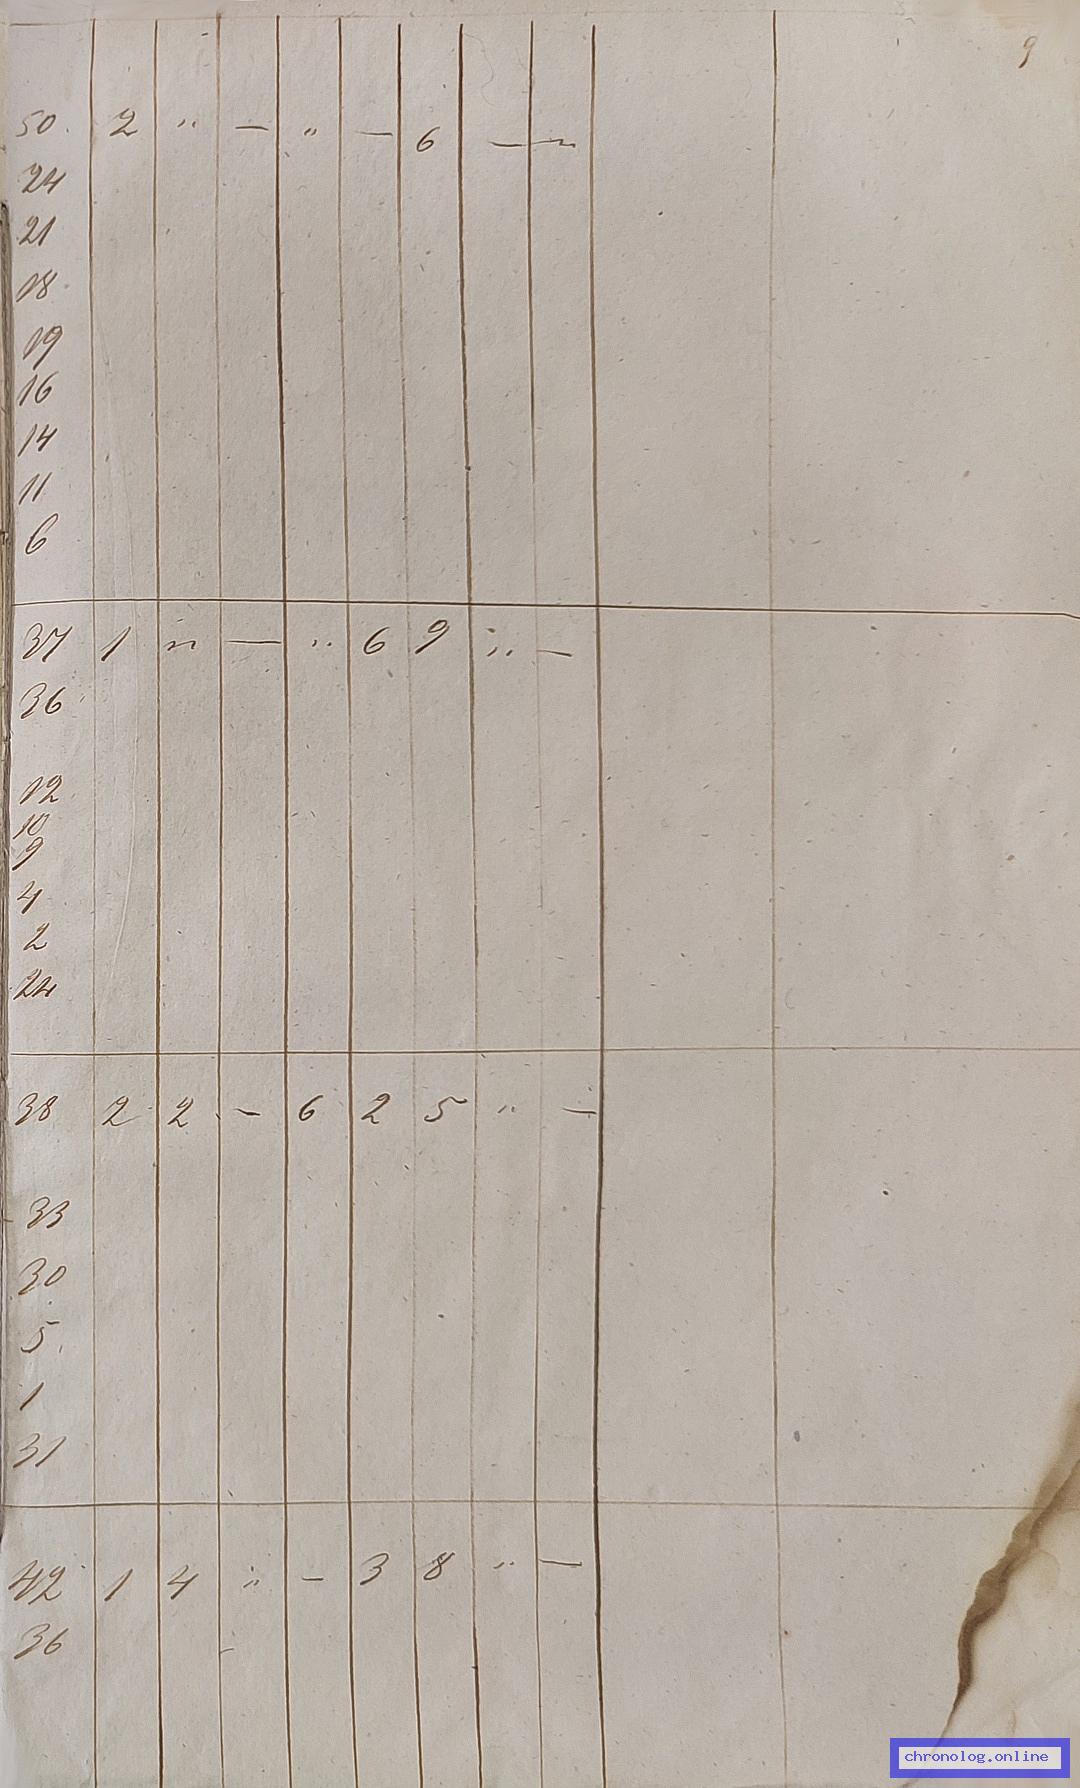 9
50. 2 " — " — 6 — —
24
21
18
19
16
14
11
6
37 1 " — " 6 9 " —
36
12
10
9
4
2
24
38 2 2 — 6 2 5 " —
33
30
5.
1
31
42 1 4 " — 3 8 " —
36
chronolog.online